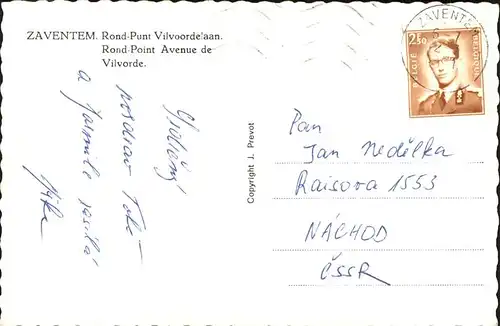 ZAVENTEM. Rond-Punt Vilvoordelaan.
Rond-Point Avenue de
Vilvorde.
Srdečný
pozdrav Tobě
a familii
Copyright J. Prevot
ZAVENTEM
2,50
BELGIË
BELGIQUE
Pan
Jan Nedělka
Raisova 1553
NÁCHOD
ČSSR